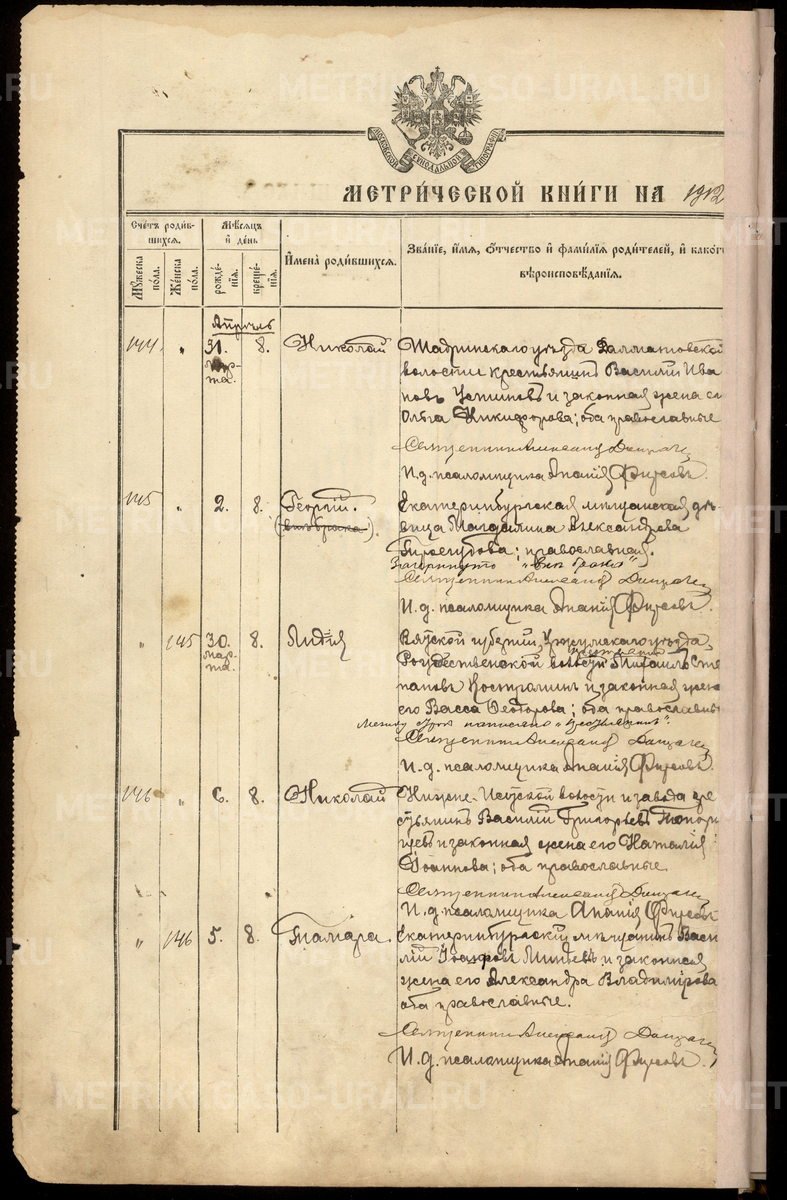 МЕТРИ́ЧЕСКОЙ КНИ́ГИ НА 1912
Сче́тъ роди́вшихся.
Мѣ́сяцъ и҆ де́нь
И҆мена̀ роди́вшихся.
Зва́нїе, и҆́мѧ, о҆́тчество и҆ фами́лїѧ роди́телей, и҆ како́г
вѣроисповѣ́данїѧ.
Мꙋ́жеска по́ла.
Же́нска по́ла.
рожде́нїѧ.
креще́нїѧ.
Апрѣль
144 " 31. марта. 8. Николай
Шадринскаго уѣзда Далматовской
волости крестьянинъ Василій Ива
новъ Устиновъ и законная жена
Ольга Никифорова; оба православные
Священникъ Александръ
И. д. псаломщика Ананія Фирсовъ.
145 " 2. 8. Георгій. (внѣбрачн).
Екатеринбургская мѣщанская дѣ
вица Магдалина Александрова
православная.
Зачеркнуто
Священникъ Александръ
И. д. псаломщика Ананія Фирсовъ.
" 145 30. марта. 8. Лидія
Вятской губерніи, Уржумскаго уѣзда,
Рождественской волости крестьянинъ Михаилъ Сте
пановъ Костроминъ и законная жена
его Васса Ѳеодорова; оба православные
Между строкъ написано "крестьянинъ".
Священникъ Александръ
И. д. псаломщика Ананія Фирсовъ.
146 " 6. 8. Николай
Нижне-Исетской волости и завода кре
стьянинъ Василій Григорьевъ
и законная жена его Наталія
Іоаннова; оба православные.
Священникъ Александръ
И. д. псаломщика Ананія Фирсовъ
" 146 5. 8. Тамара.
Екатеринбургскій мѣщанинъ Васи
лій и законная
жена его Александра Владимірова
оба православные.
Священникъ Александръ
И. д. псаломщика Ананія Фирсовъ.